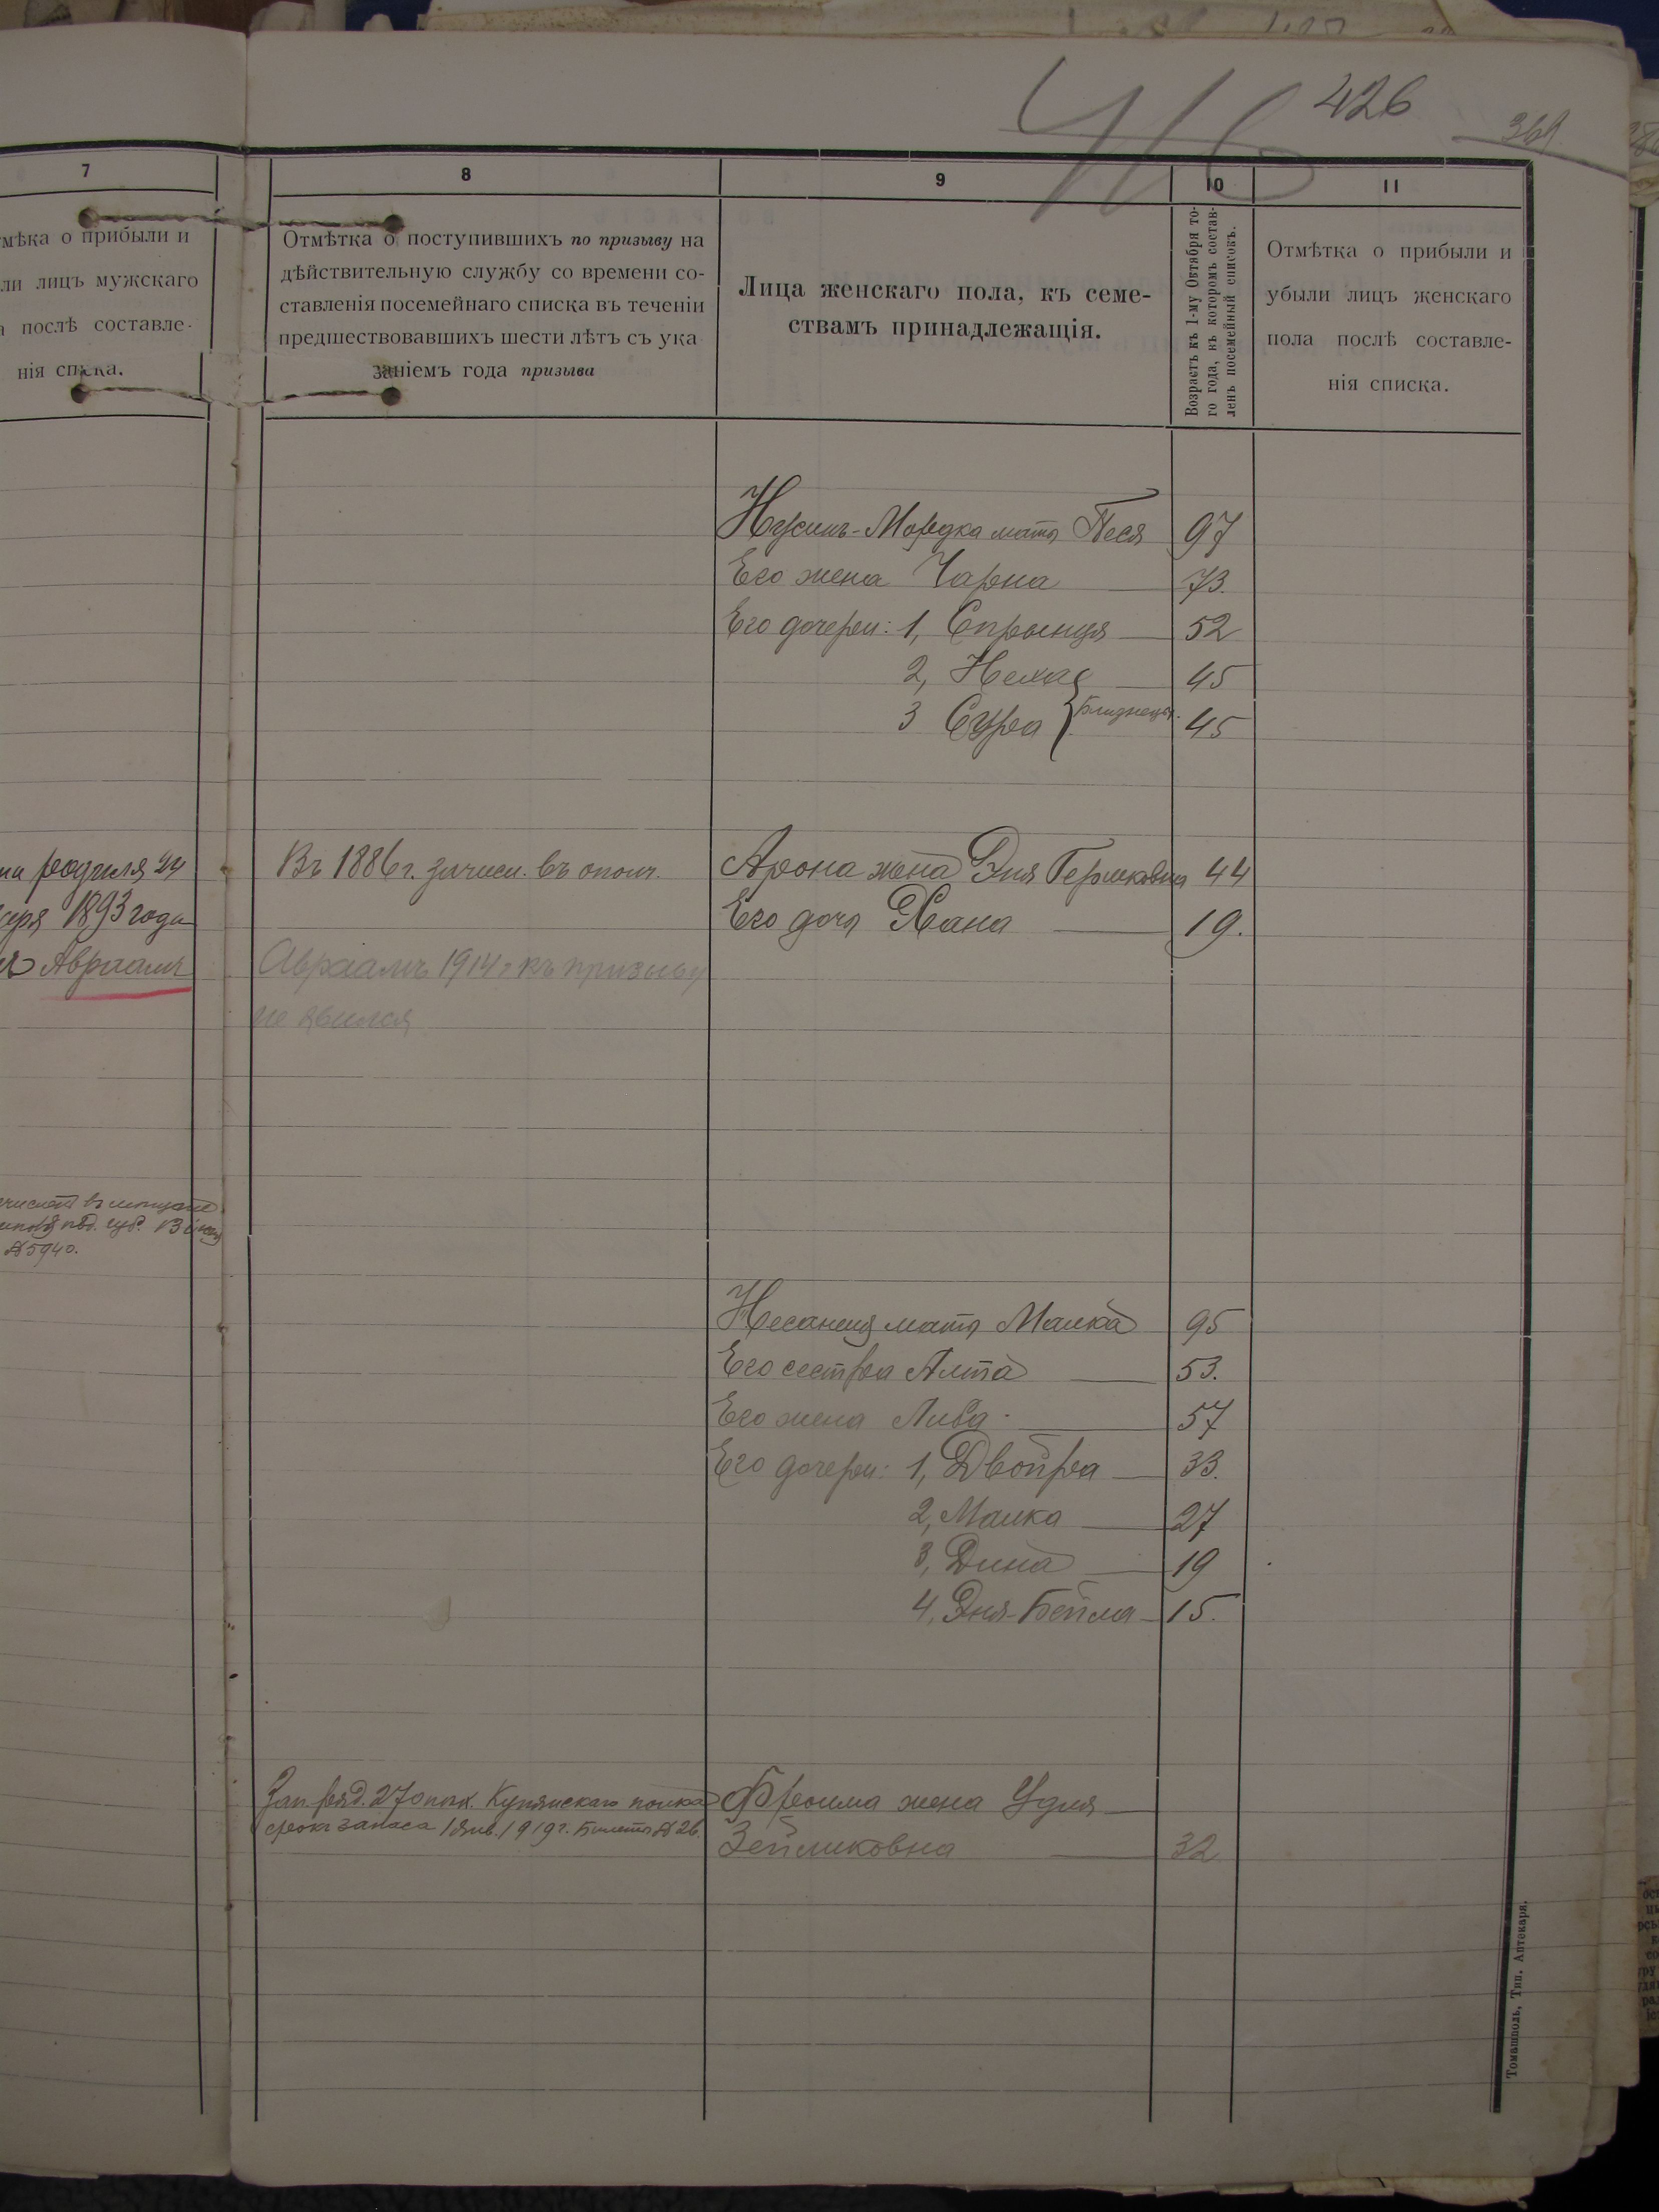 426
416
369
7
8
9
10
11
мѣка о прибыли и
ли лицъ мужскаго
послѣ составле-
нія списка.
Отмѣтка о поступившихъ по призыву на
дѣйствительную службу со времени со-
ставленія посемейнаго списка въ теченіи
предшествовавшихъ шести лѣтъ съ ука
заніемъ года призыва
Лица женскаго пола, къ семе-
ствамъ принадлежащія.
Возрастъ къ 1-му Октября то-
го года, въ которомъ состав-
ленъ посемейный списокъ.
Отмѣтка о прибыли и
убыли лицъ женскаго
пола послѣ составле-
нія списка.
Нусинъ-Мордка мать Песя 97
Его жена Чарна 73.
Его дочери: 1, Спрынця 52
2, Неха 45
3 Сура близнецы. 45
родился 24
1893 года
Авраамъ
Въ 1886 г. зачисл. въ ополч.
Авраамъ 1914 г къ призыву
не явился
Арона жена Эня Гершковна 44
Его дочь Хана 19.
№ 5940.
Несанеля мать Малка 95
Его сестра Алта 53.
Его жена Либа 57
Его дочери: 1, Двойра 33.
2, Малка 27
3, Дина 19
4, Эня-Бейла 15.
Зап. ряд. 270 пѣх. Купянскаго полка
срокъ запаса 1 Янв. 1919 г. Билетъ № 26.
Фроима жена Удля
Зейликовна 32
Томашполь, Тип. Аптекаря.